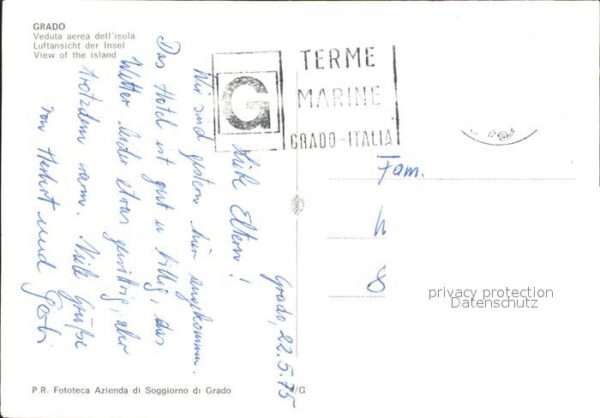 GRADO
Veduta aerea dell'isola
Luftansicht der Insel
View of the island
G
TERME
MARINE
GRADO-ITALIA
Grado, 22.5.75
Liebe Eltern!
Wir sind gestern hier angekommen.
Das Hotel ist gut u. billig, das
Wetter leider etwas gewittrig, aber
trotzdem warm. Viele Grüße
von Herbert und Gabi
Fam.
privacy protection
Datenschutz
P.R. Fototeca Azienda di Soggiorno di Grado